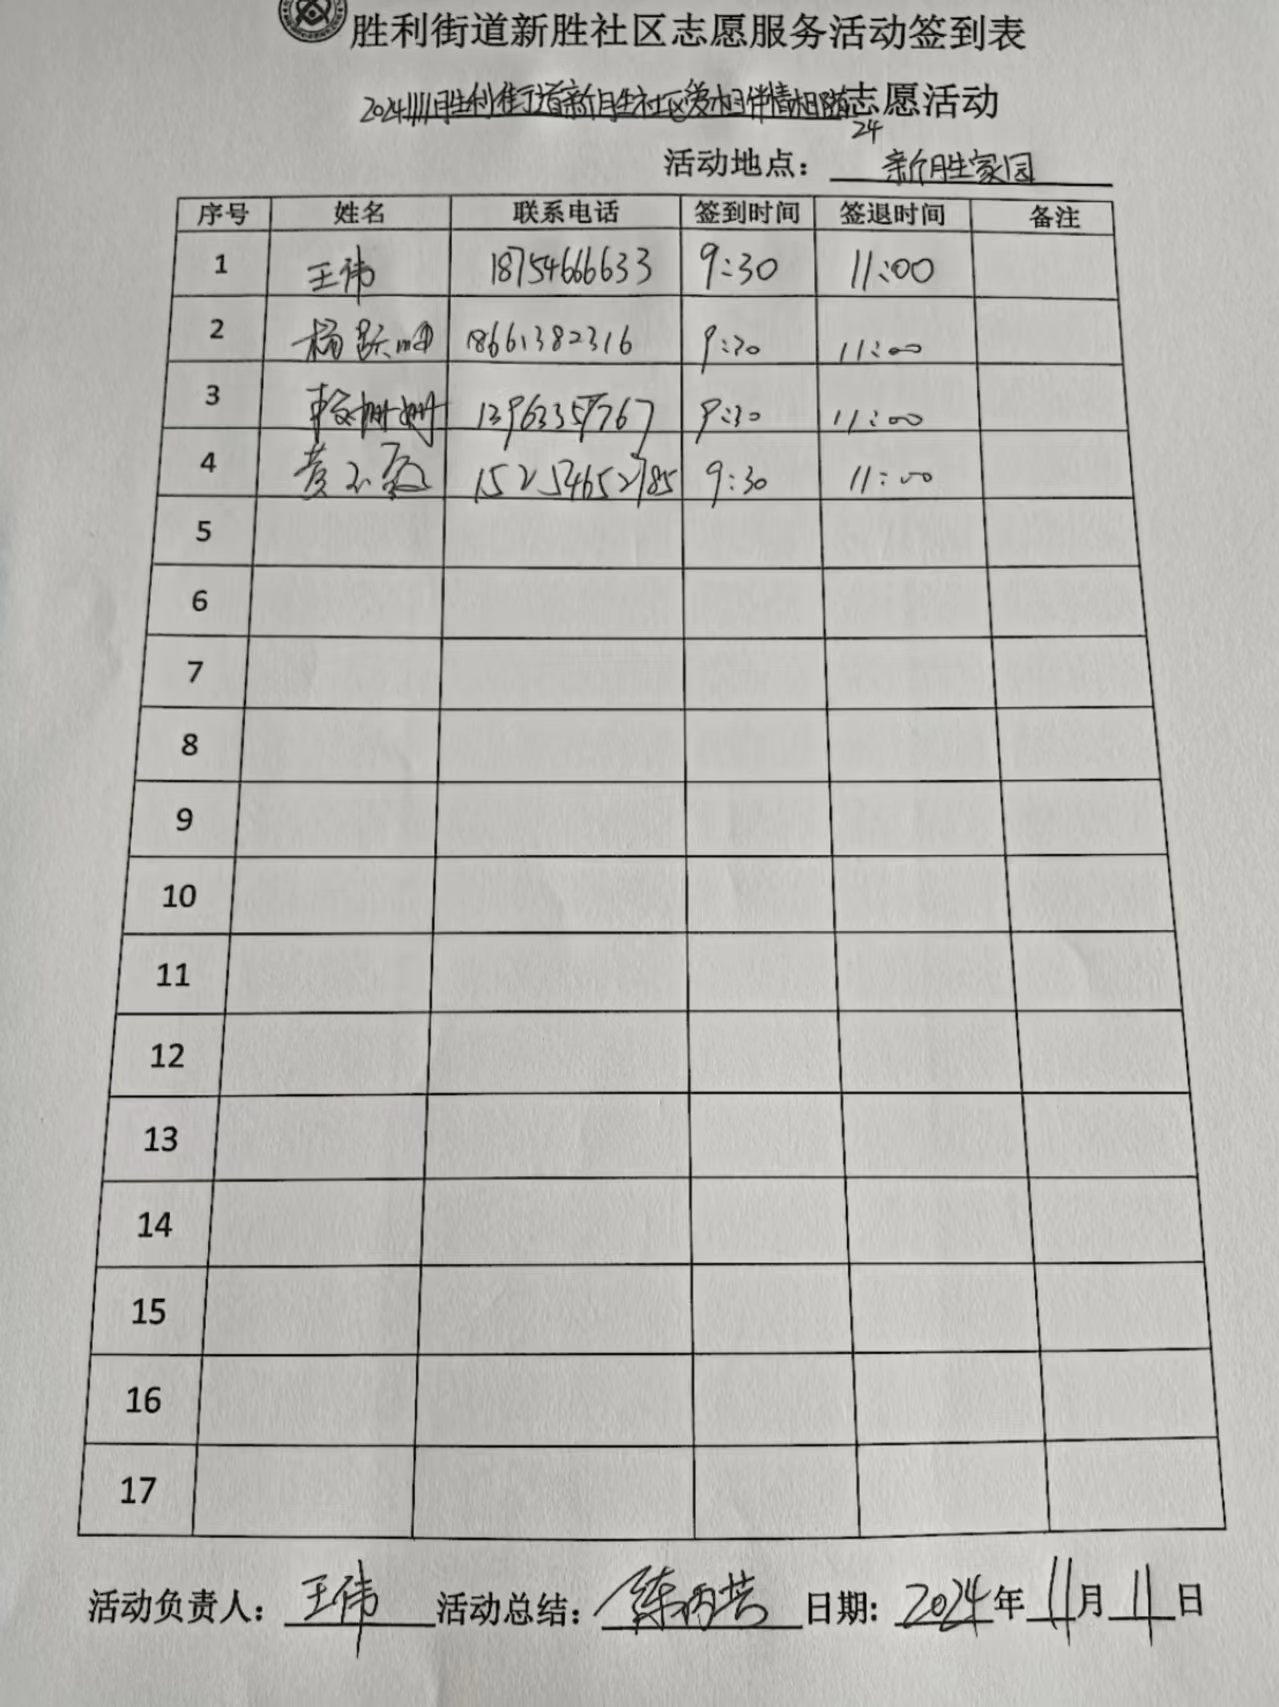 胜利街道新胜社区志愿服务活动签到表
20241111胜利街道新胜社区爱相伴情相随志愿活动
24
活动地点： 新胜家园
序号 姓名 联系电话 签到时间 签退时间 备注
1 王伟 18754666633 9:30 11:00
2 杨跃 18661382316 9:30 11:00
3 姗姗 9:30 11:00
4 黄 15254652785 9:30 11:00
5
6
7
8
9
10
11
12
13
14
15
16
17
活动负责人： 王伟 活动总结： 陈丙芸 日期: 2024年11月11日